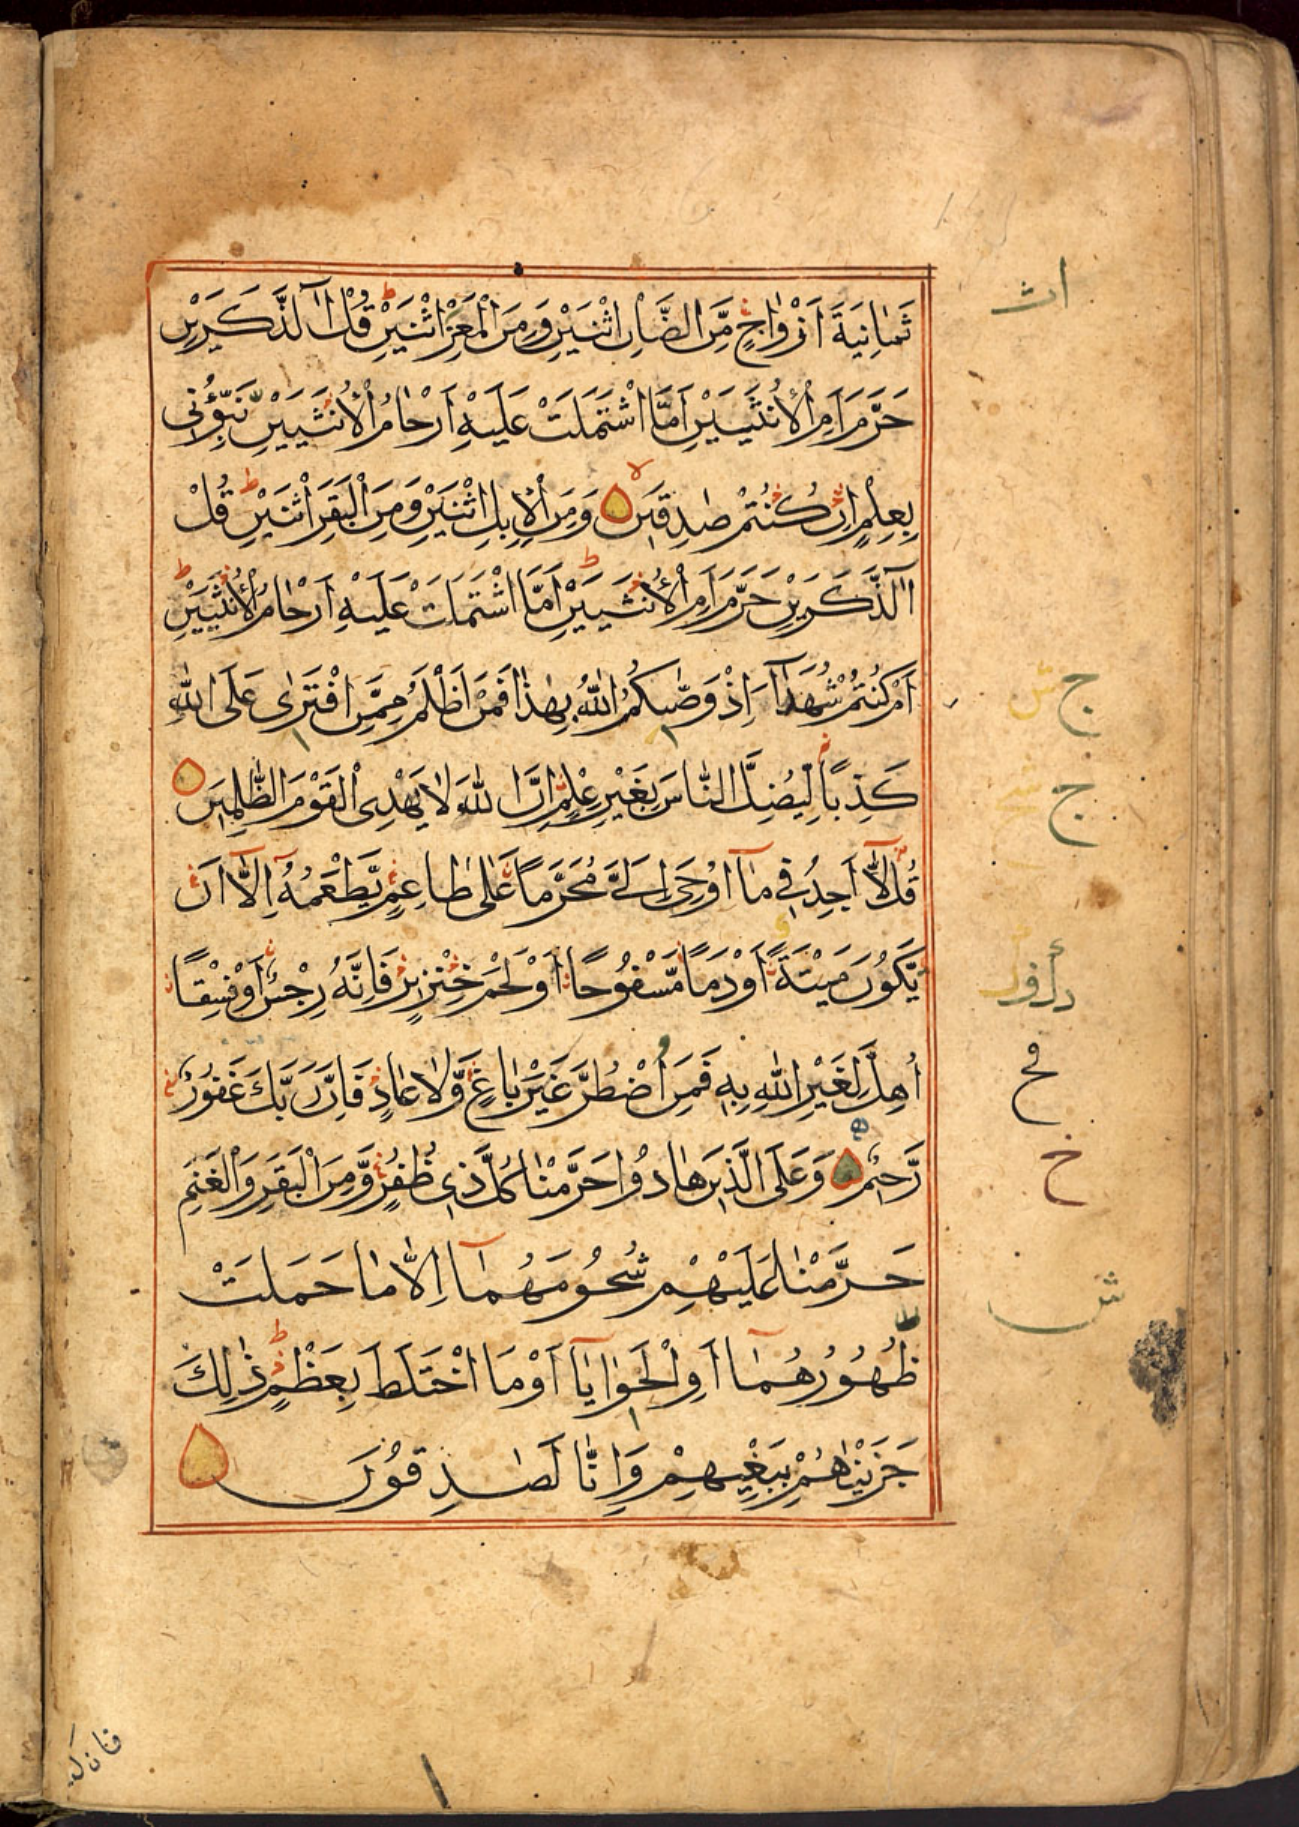 ثَمَانِيَةَ اَزْوَاجٍ مِّنَ الضَّاْنِ اثْنَيْنِ وَمِنَ الْمَعْزِ اثْنَيْنِ قُلْ آٰلذَّكَرَيْنِ
حَرَّمَ اَمِ الْاُنْثَيَيْنِ اَمَّا اشْتَمَلَتْ عَلَيْهِ اَرْحَامُ الْاُنْثَيَيْنِ نَبِّؤُنِى
بِعِلْمٍ اِنْ كُنْتُمْ صٰدِقِينَ وَمِنَ الْاِبِلِ اثْنَيْنِ وَمِنَ الْبَقَرِ اثْنَيْنِ قُلْ
آٰلذَّكَرَيْنِ حَرَّمَ اَمِ الْاُنْثَيَيْنِ اَمَّا اشْتَمَلَتْ عَلَيْهِ اَرْحَامُ الْاُنْثَيَيْنِ
اَمْ كُنْتُمْ شُهَدَآءَ اِذْ وَصّٰيكُمُ اللّٰهُ بِهٰذَا فَمَنْ اَظْلَمُ مِمَّنِ افْتَرٰى عَلَى اللّٰهِ
كَذِبًا لِّيُضِلَّ النَّاسَ بِغَيْرِ عِلْمٍ اِنَّ اللّٰهَ لَا يَهْدِى الْقَوْمَ الظّٰلِمِينَ
قُلْ لَّآ اَجِدُ فِى مَآ اُوْحِىَ اِلَىَّ مُحَرَّمًا عَلٰى طَاعِمٍ يَّطْعَمُهُ اِلَّآ اَنْ
يَّكُوْنَ مَيْتَةً اَوْ دَمًا مَّسْفُوْحًا اَوْ لَحْمَ خِنْزِيرٍ فَاِنَّهُ رِجْسٌ اَوْ فِسْقًا
اُهِلَّ لِغَيْرِ اللّٰهِ بِهِ فَمَنِ اضْطُرَّ غَيْرَ بَاغٍ وَّلَا عَادٍ فَاِنَّ رَبَّكَ غَفُوْرٌ
رَّحِيمٌ وَعَلَى الَّذِينَ هَادُوْا حَرَّمْنَا كُلَّ ذِى ظُفُرٍ وَّمِنَ الْبَقَرِ وَالْغَنَمِ
حَرَّمْنَا عَلَيْهِمْ شُحُوْمَهُمَآ اِلَّا مَا حَمَلَتْ
ظُهُوْرُهُمَآ اَوِ الْحَوَايَآ اَوْ مَا اخْتَلَطَ بِعَظْمٍ ذٰلِكَ
جَزَيْنَاهُمْ بِبَغْيِهِمْ وَاِنَّا لَصٰدِقُوْنَ
ج
ج
خ
ش